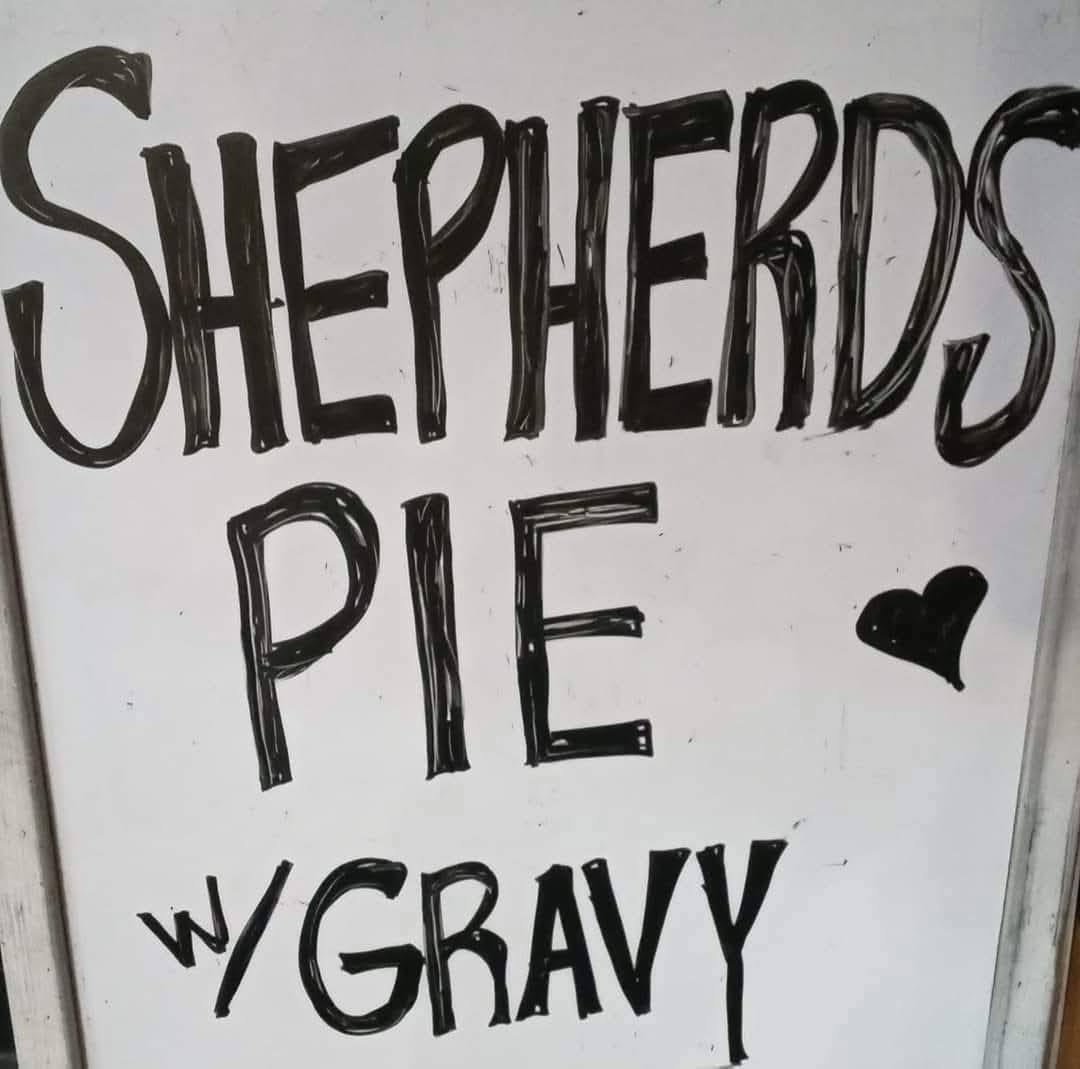 SHEPHERDS
PIE
w/ GRAVY